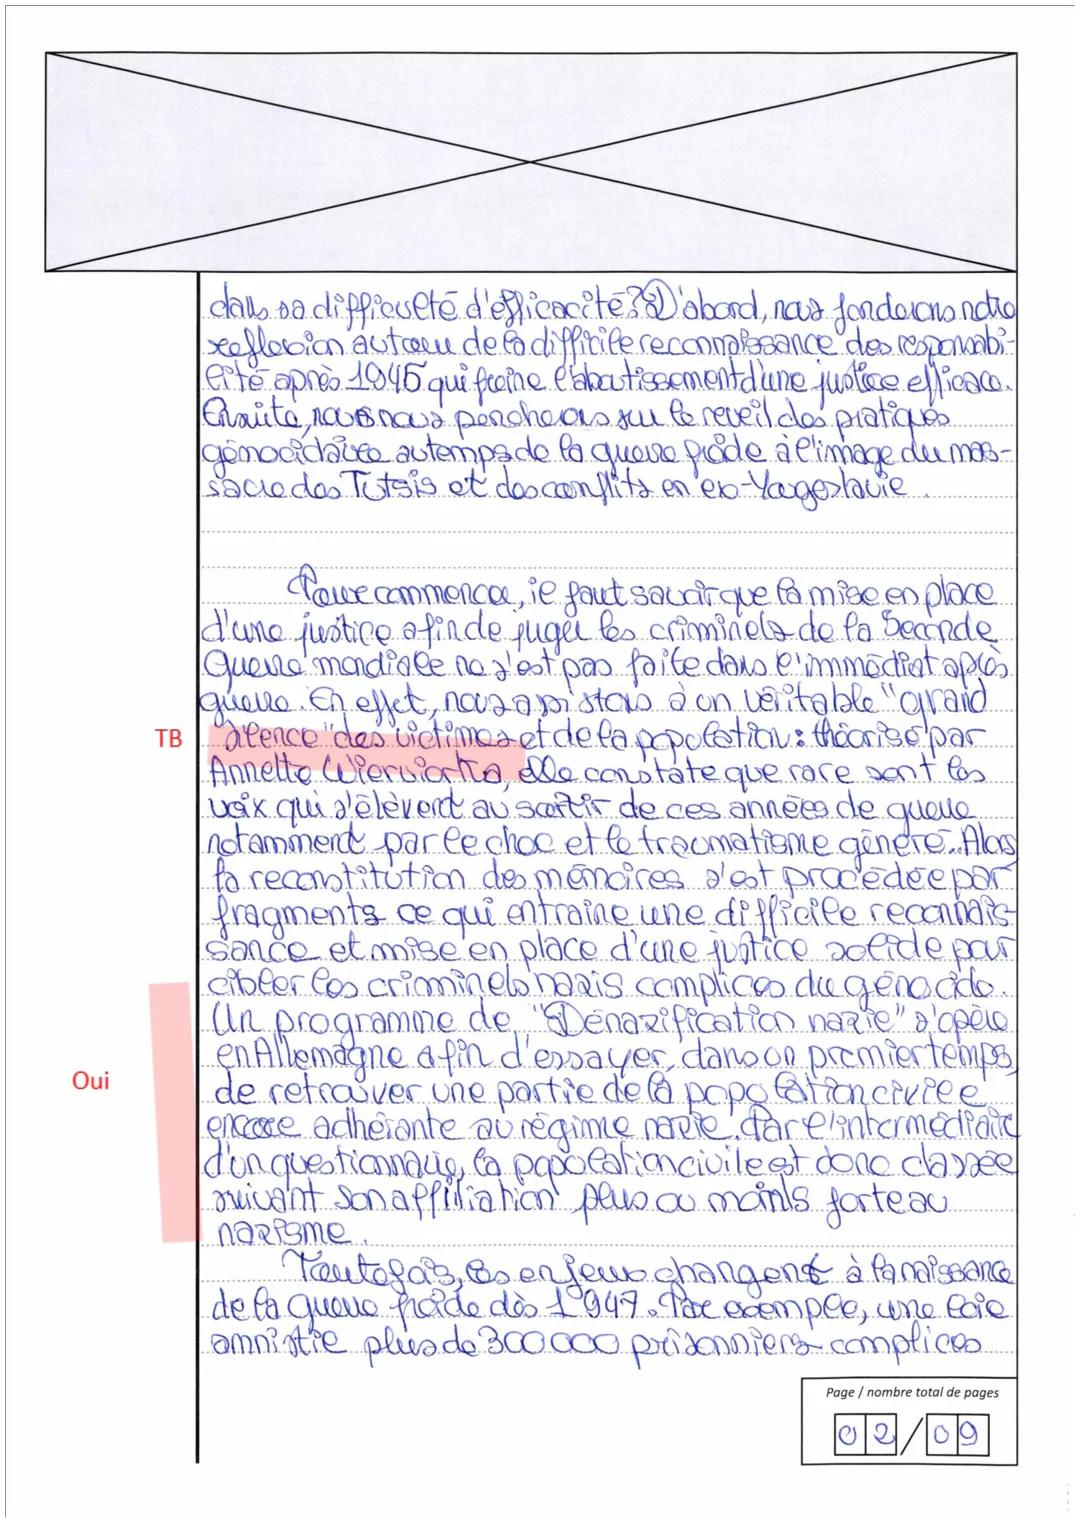 dans sa difficulté d'efficacité? D'abord, nous fonderons notre
reflexion autour de la difficile reconnaissance des responsabi-
lité après 1945 qui freine l'aboutissement d'une justice efficace.
Ensuite, nous nous pencherons sur le reveil des pratiques
génocidaires au temps de la guerre froide à l'image du mas-
sacre des Tutsis et des conflits en ex-Yougoslavie.
Pour commencer, il faut savoir que la mise en place
d'une justice afin de juger les criminels de la Seconde
Guerre mondiale ne s'est pas faite dans l'immédiat après
guerre. En effet, nous assistons à un véritable "grand
TB silence" des victimes et de la population : théorisé par
Annette Wieviorka, elle constate que rare sont les
voix qui s'élèvent au sortir de ces années de guerre
notamment par le choc et le traumatisme généré. Alors
la reconstitution des mémoires s'est procédée par
fragments ce qui entraine une difficile reconnais-
sance et mise en place d'une justice solide pour
cibler les criminels nazis complices du génocide.
Un programme de "Dénazification nazie" s'opère
en Allemagne afin d'essayer, dans un premier temps,
Oui de retrouver une partie de la population civile
encore adhérante au régime nazie. Par l'intermédiaire
d'un questionnaire, la population civile est donc classée
suivant son affiliation plus ou moins forte au
nazisme.
Toutefois, les enjeux changent à la naissance
de la guerre froide dès 1947. Par exemple, une loie
amnistie plus de 300 000 prisonniers complices
Page / nombre total de pages
02/09